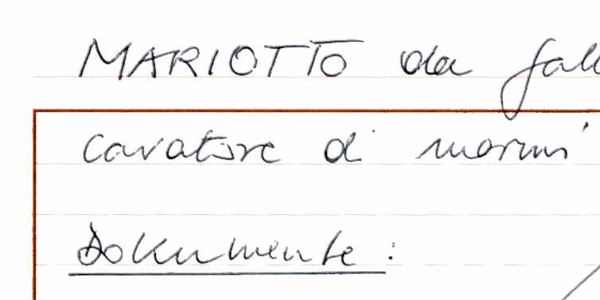 MARIOTTO da
Cavatore di marmi
Dokumente: